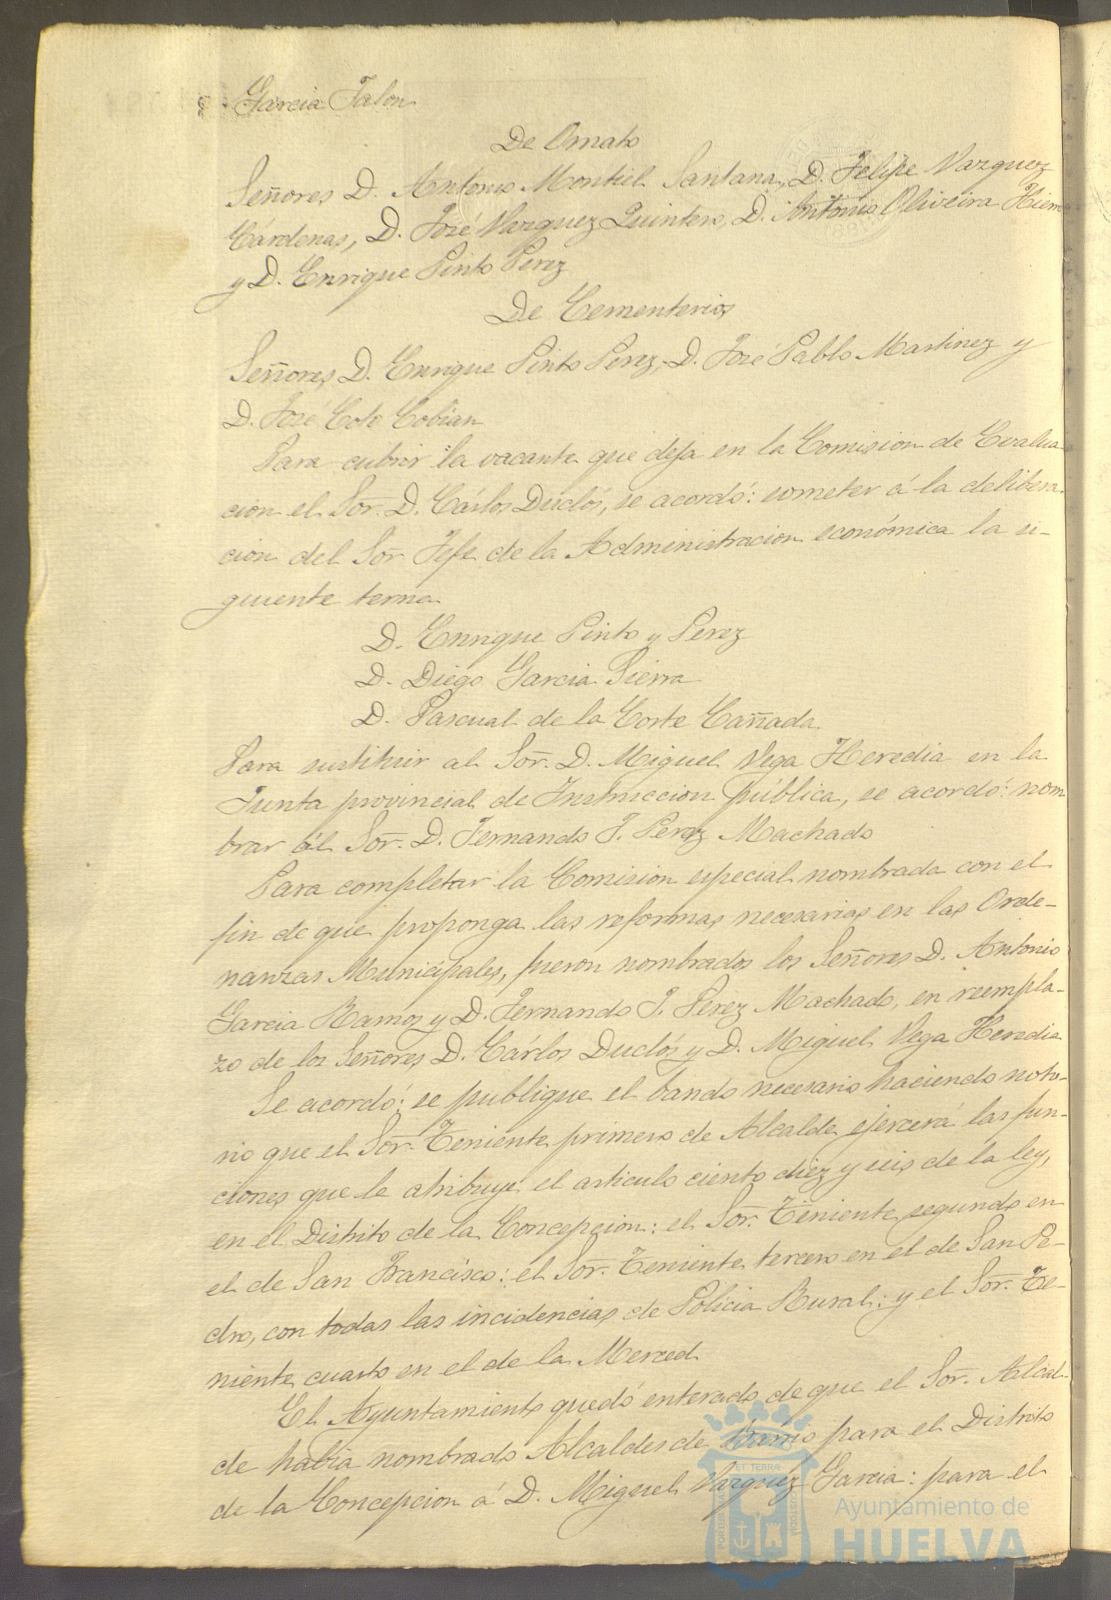 Garcia Talon
De Ornato
Señores D. Antonio Montiel Santana, D. Felipe Vazquez
Cárdenas, D. José Vazquez Quintero, D. Antonio Oliveira Hierro
y D. Enrique Pinto Perez
De Cementerios
Señores D. Enrique Pinto Perez, D. José Pablo Martinez y
D. José Coto Cobian
Para cubrir la vacante que deja en la Comision de Evalua
cion el Sor. D. Cárlos Duclós, se acordó: someter á la delibera
cion del Sor Jefe de la Administracion económica la si-
guiente terna
D. Enrique Pinto y Perez
D. Diego Garcia Sierra
D. Pascual de la Corte Cañada
Para sustituir al Sor. D. Miguel Vega Heredia en la
Junta provincial de Instruccion pública, se acordó: nom
brar al Sor. D. Fernando J. Perez Machado
Para completar la Comision especial nombrada con el
fin de que proponga las reformas necesarias en las Orde-
nanzas Municipales, fueron nombrados los Señores D. Antonio
Garcia Ramos y D. Fernando J. Perez Machado, en reempla-
zo de los Señores D. Cárlos Duclós y D. Miguel Vega Heredia
Se acordó: se publique el bando necesario haciendo noto-
rio que el Sor. Teniente primero de Alcalde ejercerá las fun-
ciones que le atribuye el articulo ciento diez y seis de la ley,
en el Distrito de la Concepcion: el Sor. Teniente segundo en
el de San Francisco: el Sor. Teniente tercero en el de San Pe-
dro, con todas las incidencias de Policia Rural: y el Sor. Te-
niente cuarto en el de la Merced
El Ayuntamiento quedó enterado de que el Sor. Alcal-
de habia nombrado Alcaldes de barrio para el Distrito
de la Concepcion á D. Miguel Vazquez Garcia: para el
Ayuntamiento de
HUELVA